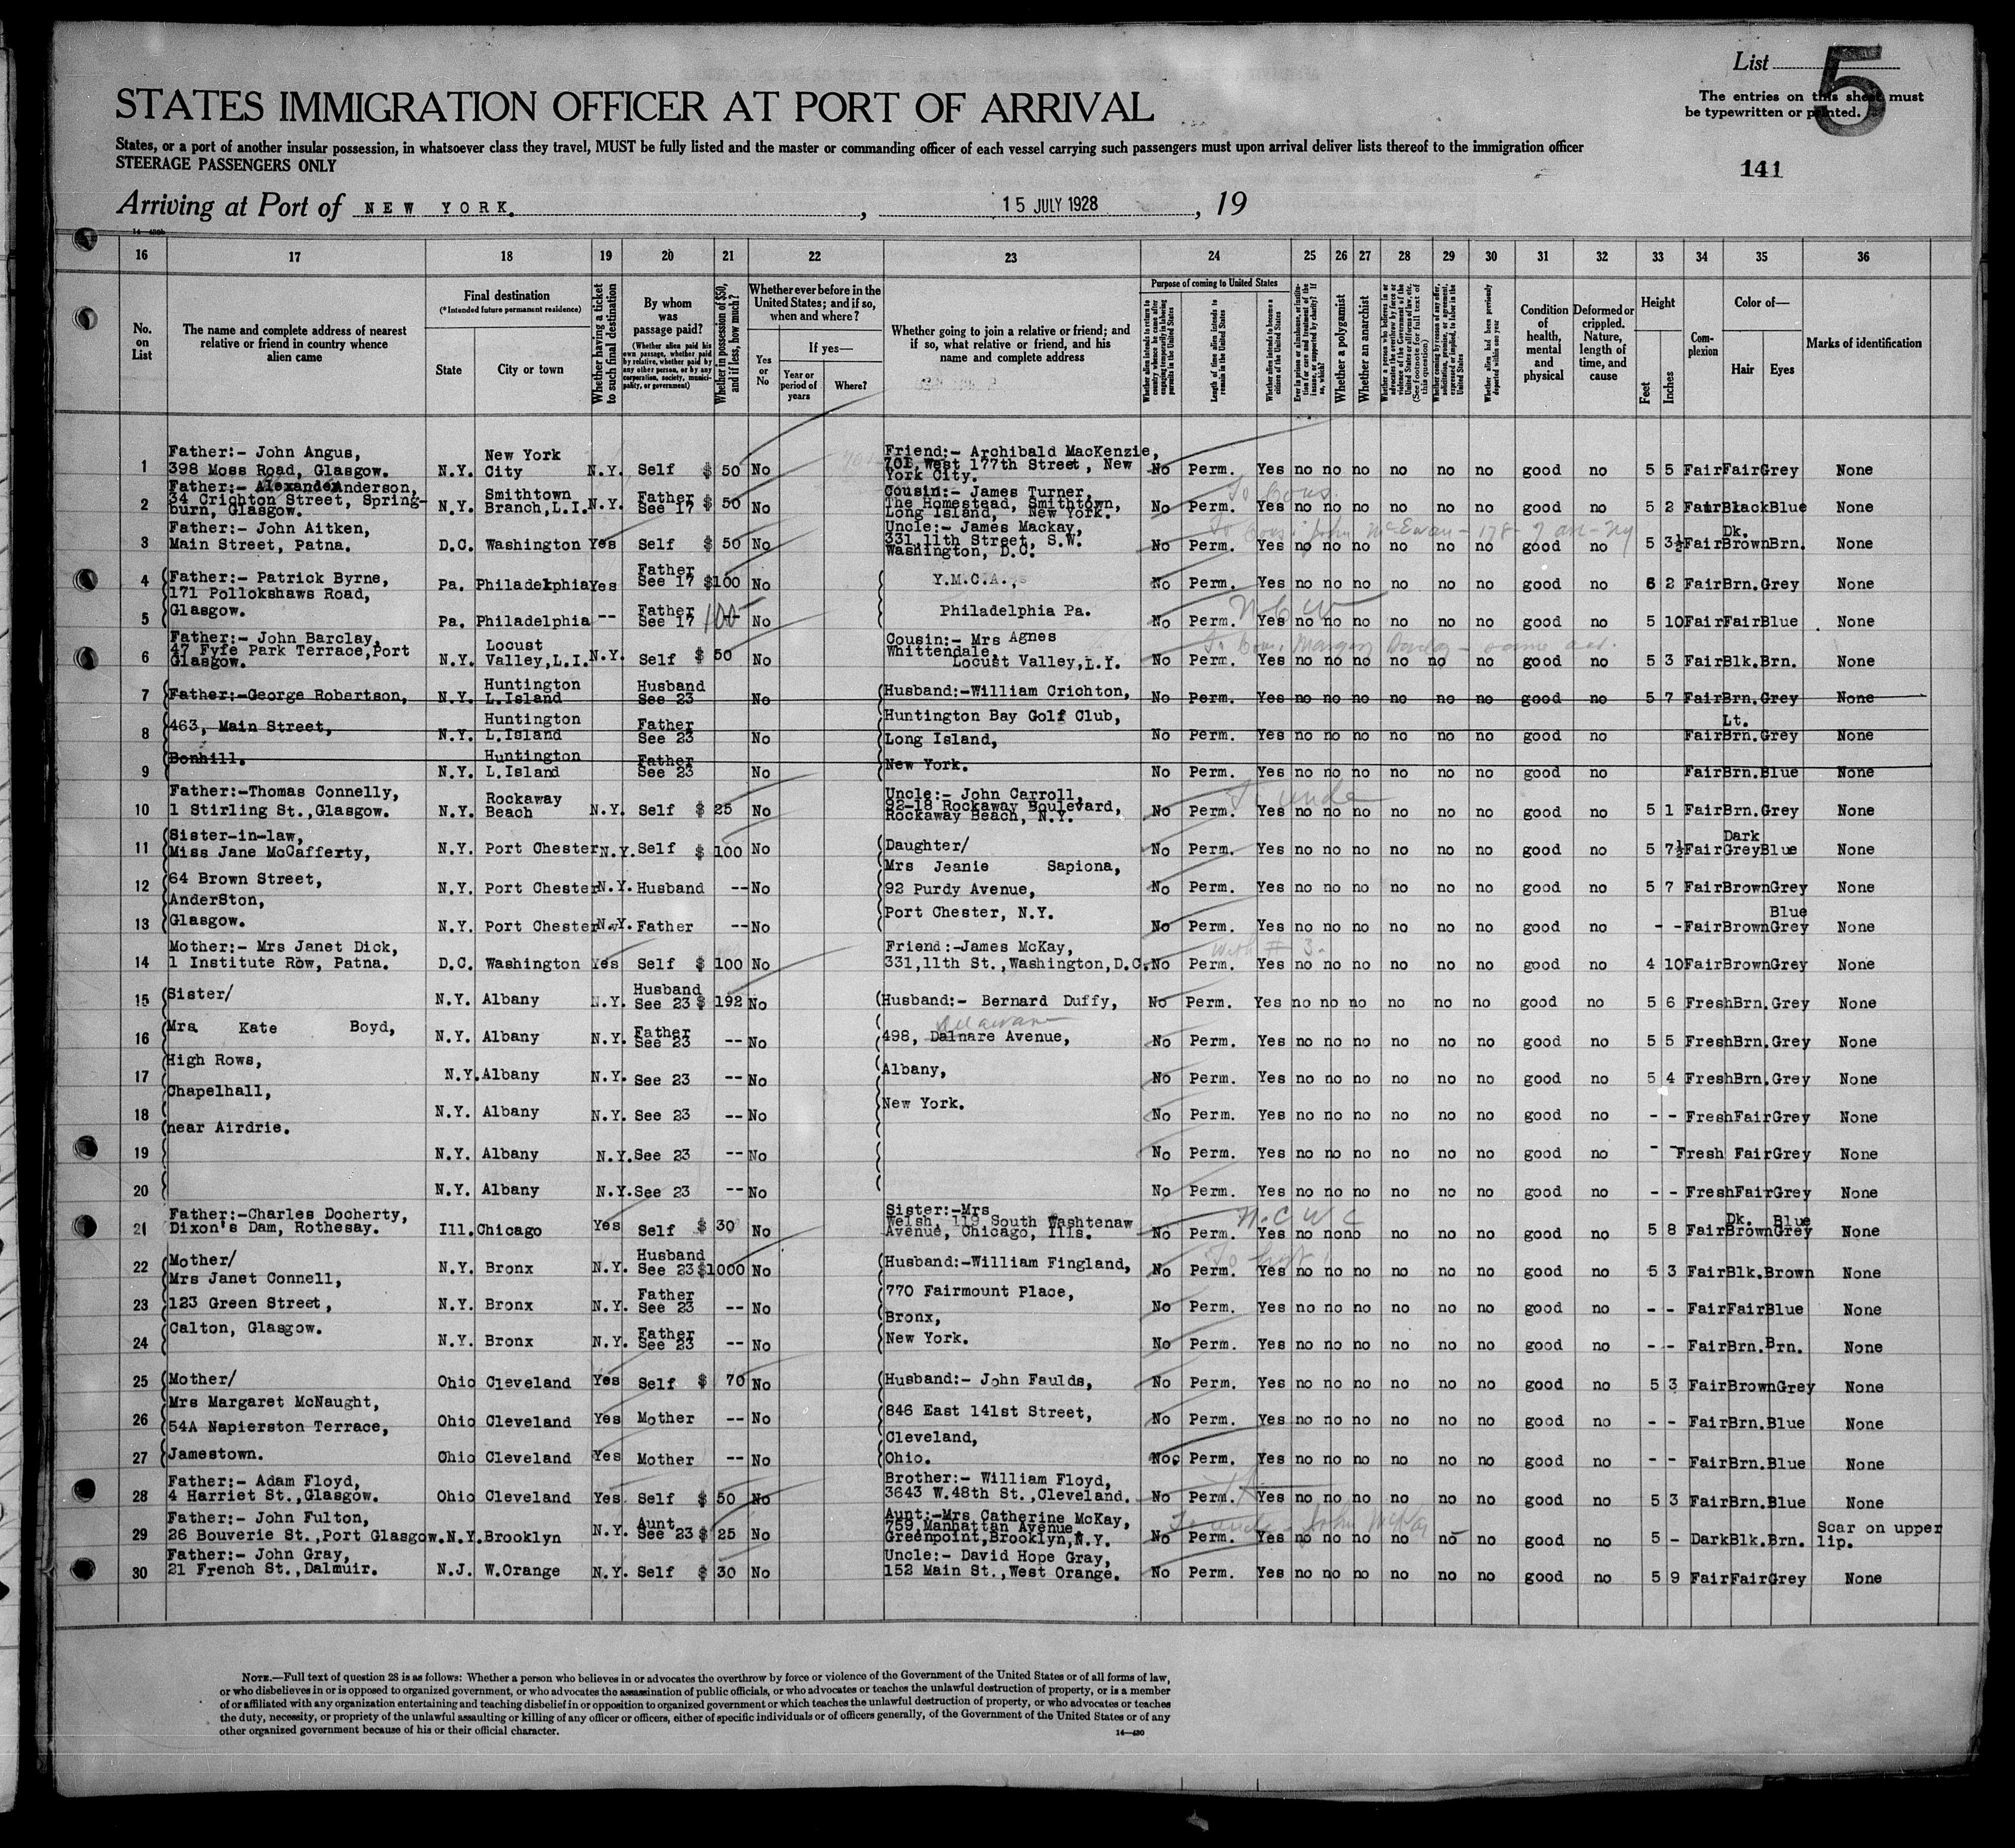 List 5
The entries on this sheet must
be typewritten or printed.
STATES IMMIGRATION OFFICER AT PORT OF ARRIVAL
States, or a port of another insular possession, in whatsoever class they travel, MUST be fully listed and the master or commanding officer of each vessel carrying such passengers must upon arrival deliver lists thereof to the immigration officer
STEERAGE PASSENGERS ONLY
141
Arriving at Port of NEW YORK. , 15 JULY 1928 , 19
16 17 18 19 20 21 22 23 24 25 26 27 28 29 30 31 32 33 34 35 36
No. on List
The name and complete address of nearest relative or friend in country whence alien came
Final destination
(*Intended future permanent residence)
State
City or town
Whether having a ticket to such final destination
By whom was passage paid?
(Whether alien paid his own passage, whether paid by relative, whether paid by any other person, or by any corporation, society, municipality, or government)
Whether in possession of $50, and if less, how much?
Whether ever before in the United States; and if so, when and where?
Yes or No
If yes—
Year or period of years
Where?
Whether going to join a relative or friend; and if so, what relative or friend, and his name and complete address
Purpose of coming to United States
Length of time alien intends to remain in the United States
Whether alien intends to become a citizen of the United States
Whether a polygamist
Whether an anarchist
Whether alien had been previously deported within one year
Condition of health, mental and physical
Deformed or crippled. Nature, length of time, and cause
Height
Feet
Inches
Complexion
Color of—
Hair
Eyes
Marks of identification
1 Father:- John Angus, 398 Moss Road, Glasgow. N.Y. New York City N.Y. Self $ 50 No Friend:- Archibald MacKenzie, 701, West 177th Street, New York City. No Perm. Yes no no no no no no good no 5 5 Fair Fair Grey None
2 Father:- Alexander Anderson, 34 Crichton Street, Springburn, Glasgow. N.Y. Smithtown Branch, L.I. N.Y. Father See 17 $ 50 No Cousin:- James Turner, The Homestead, Smithtown, Long Island, New York. No Perm. Yes no no no no no no good no 5 2 Fair Black Blue None
To Cous.
3 Father:- John Aitken, Main Street, Patna. D.C. Washington Yes Self $ 50 No Uncle:- James Mackay, 331, 11th Street, S.W. Washington, D.C. No Perm. Yes no no no no no no good no 5 3½ Fair Dk. Brown Brn. None
4 Father:- Patrick Byrne, 171 Pollokshaws Road, Pa. Philadelphia Yes Father See 17 $100 No Y.M.C.A., No Perm. Yes no no no no no no good no 6 2 Fair Brn. Grey None
5 Glasgow. Pa. Philadelphia -- Father See 17 100 No Philadelphia Pa. No Perm. Yes no no no no no no good no 5 10 Fair Fair Blue None
6 Father:- John Barclay, 47 Fyfe Park Terrace, Port Glasgow. N.Y. Locust Valley, L.I. N.Y. Self $ 50 No Cousin:- Mrs Agnes Whittendale, Locust Valley, L.I. No Perm. Yes no no no no no no good no 5 3 Fair Blk. Brn. None
7 Father:-George Robertson, N.Y. Huntington L.Island Husband See 23 No Husband:-William Crichton, No Perm. Yes no no no no no no good no 5 7 Fair Brn. Grey None
8 463, Main Street, N.Y. Huntington L.Island Father See 23 No Huntington Bay Golf Club, Long Island, No Perm. Yes no no no no no no good no Fair Lt. Brn. Grey None
9 Bonhill. N.Y. Huntington L.Island Father See 23 No New York. No Perm. Yes no no no no no no good no Fair Brn. Blue None
10 Father:-Thomas Connelly, 1 Stirling St., Glasgow. N.Y. Rockaway Beach N.Y. Self $ 25 No Uncle:- John Carroll, 92-18 Rockaway Boulevard, Rockaway Beach, N.Y. No Perm. Yes no no no no no no good no 5 1 Fair Brn. Grey None
11 Sister-in-law, Miss Jane McCafferty, N.Y. Port Chester N.Y. Self $ 100 No Daughter/ Mrs Jeanie Sapiona, No Perm. Yes no no no no no no good no 5 7½ Fair Dark Grey Blue None
12 64 Brown Street, AnderSton, N.Y. Port Chester N.Y. Husband -- No 92 Purdy Avenue, No Perm. Yes no no no no no no good no 5 7 Fair Brown Grey None
13 Glasgow. N.Y. Port Chester N.Y. Father -- No Port Chester, N.Y. No Perm. Yes no no no no no no good no - - Fair Brown Blue Grey None
14 Mother:- Mrs Janet Dick, 1 Institute Row, Patna. D.C. Washington Yes Self $ 100 No Friend:-James McKay, 331, 11th St., Washington, D.C. No Perm. Yes no no no no no no good no 4 10 Fair Brown Grey None
with # 3
15 Sister/ N.Y. Albany N.Y. Husband See 23 $ 192 No Husband:- Bernard Duffy, No Perm. Yes no no no no no no good no 5 6 Fresh Brn. Grey None
16 Mrs Kate Boyd, N.Y. Albany N.Y. Father See 23 -- No Delaware 498, Dalnare Avenue, No Perm. Yes no no no no no no good no 5 5 Fresh Brn. Grey None
17 High Rows, Chapelhall, N.Y. Albany N.Y. See 23 -- No Albany, No Perm. Yes no no no no no no good no 5 4 Fresh Brn. Grey None
18 near Airdrie. N.Y. Albany N.Y. See 23 -- No New York. No Perm. Yes no no no no no no good no - - Fresh Fair Grey None
19 N.Y. Albany N.Y. See 23 -- No No Perm. Yes no no no no no no good no - - Fresh Fair Grey None
20 N.Y. Albany N.Y. See 23 -- No No Perm. Yes no no no no no no good no - - Fresh Fair Grey None
21 Father:-Charles Docherty, Dixon's Dam, Rothesay. Ill. Chicago Yes Self $ 30 No Sister:-Mrs Welsh, 119 South Washtenaw Avenue, Chicago, Ills. No Perm. Yes no no no no no no good no 5 8 Fair Dk. Brown Blue Grey None
N.C.W.C
22 Mother/ Mrs Janet Connell, N.Y. Bronx N.Y. Husband See 23 $1000 No Husband:-William Fingland, No Perm. Yes no no no no no no good no 5 3 Fair Blk. Brown None
23 123 Green Street, N.Y. Bronx N.Y. Father See 23 -- No 770 Fairmount Place, Bronx, No Perm. Yes no no no no no no good no - - Fair Fair Blue None
24 Calton, Glasgow. N.Y. Bronx N.Y. Father See 23 -- No New York. No Perm. Yes no no no no no no good no - - Fair Brn. Brn. None
25 Mother/ Ohio Cleveland Yes Self $ 70 No Husband:- John Faulds, No Perm. Yes no no no no no no good no 5 3 Fair Brown Grey None
26 Mrs Margaret McNaught, 54A Napierston Terrace, Ohio Cleveland Yes Mother -- No 846 East 141st Street, No Perm. Yes no no no no no no good no - - Fair Brn. Blue None
27 Jamestown. Ohio Cleveland Yes Mother -- No Cleveland, Ohio. No Perm. Yes no no no no no no good no - - Fair Brn. Blue None
28 Father:- Adam Floyd, 4 Harriet St., Glasgow. Ohio Cleveland Yes Self $ 50 No Brother:- William Floyd, 3643 W.48th St., Cleveland. No Perm. Yes no no no no no no good no 5 3 Fair Brn. Blue None
29 Father:- John Fulton, 26 Bouverie St., Port Glasgow. N.Y. Brooklyn N.Y. Aunt See 23 $ 25 No Aunt:-Mrs Catherine McKay, 759, Manhattan Avenue, Greenpoint, Brooklyn, N.Y. No Perm. Yes no no no no no no good no 5 - Dark Blk. Brn. Scar on upper lip.
30 Father:- John Gray, 21 French St., Dalmuir. N.J. W.Orange N.Y. Self $ 30 No Uncle:- David Hope Gray, 152 Main St., West Orange. No Perm. Yes no no no no no no good no 5 9 Fair Fair Grey None
NOTE.—Full text of question 28 is as follows: Whether a person who believes in or advocates the overthrow by force or violence of the Government of the United States or of all forms of law,
or who disbelieves in or is opposed to organized government, or who advocates the assassination of public officials, or who advocates or teaches the unlawful destruction of property, or is a member
of or affiliated with any organization entertaining and teaching disbelief in or opposition to organized government or which teaches the unlawful destruction of property, or who advocates or teaches
the duty, necessity, or propriety of the unlawful assaulting or killing of any officer or officers, either of specific individuals or of officers generally, of the Government of the United States or of any
other organized government because of his or their official character.
14—430